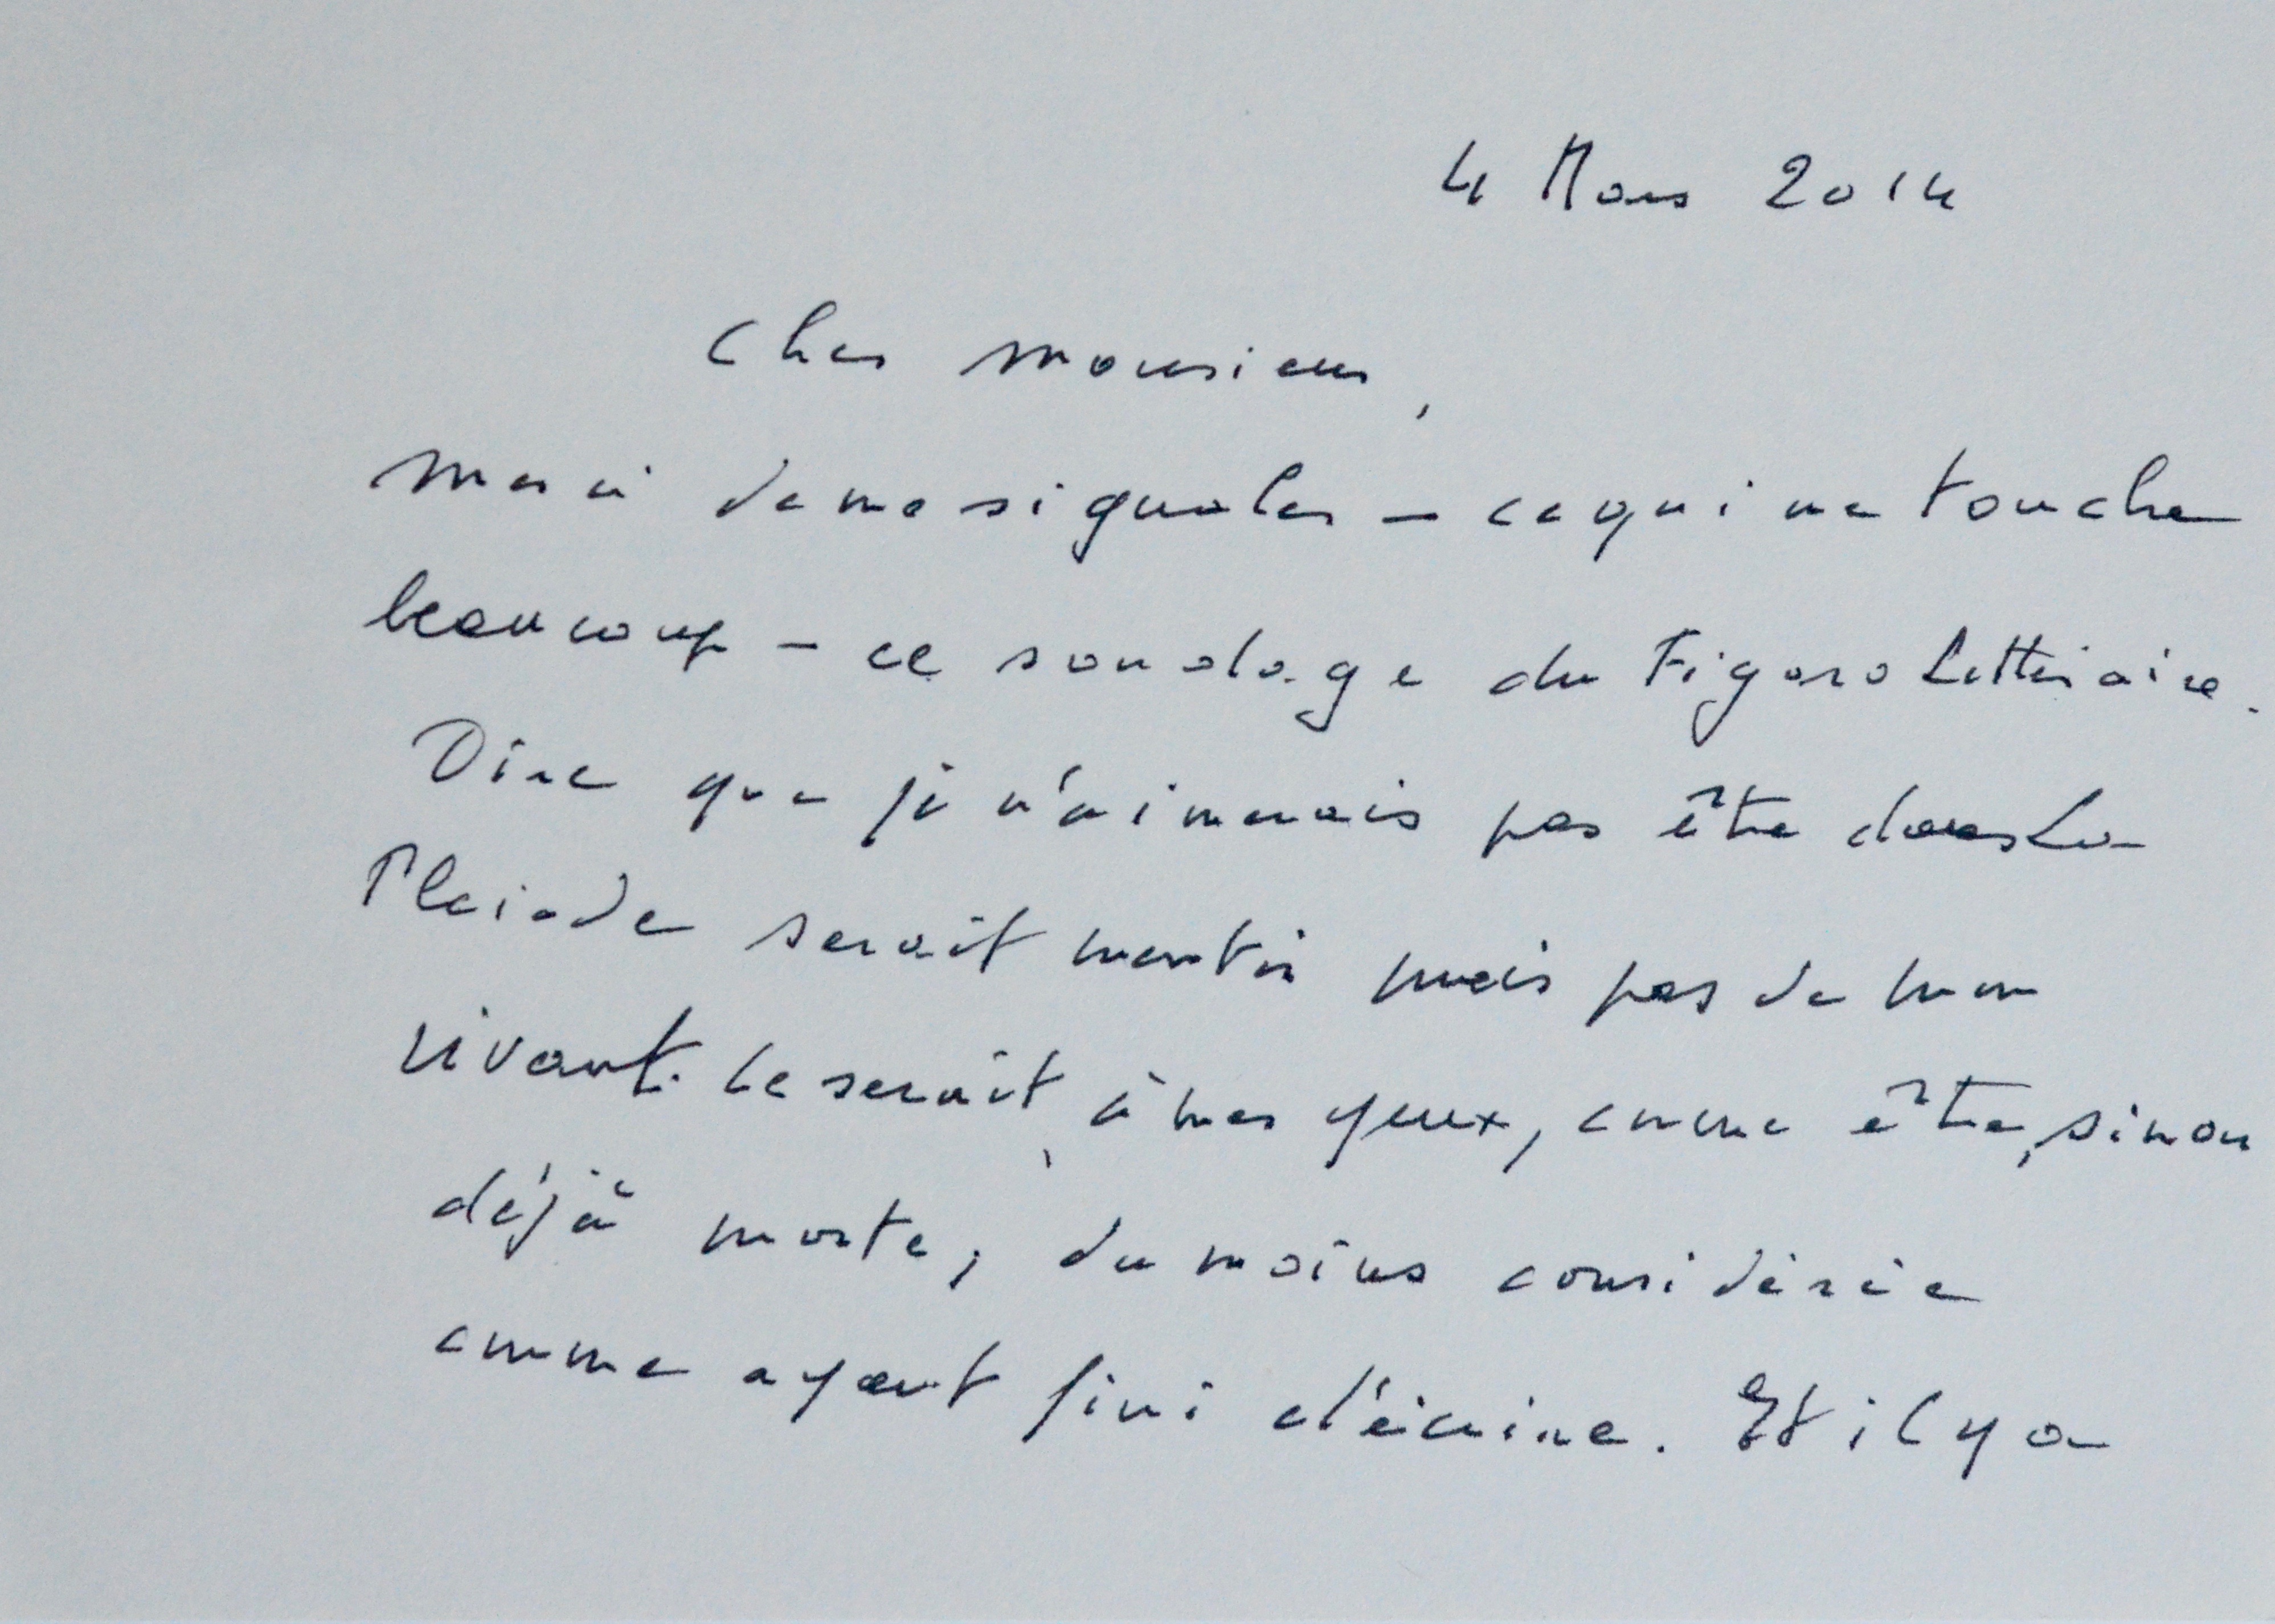 4 Mars 2014
Cher monsieur,
Merci de me signaler – ce qui me touche
beaucoup – ce sondage du Figaro Littéraire.
Dire que je n'aimerais pas être dans La
Pleiade serait mentir mais pas de mon
vivant. Ce serait, à mes yeux, comme être, sinon
déjà morte, du moins considérée
comme ayant fini d'écrire. Et il y a